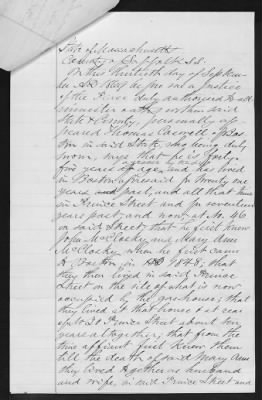 State of Massachusetts
County of Suffolk S.S.
On this thirtieth day of Septem-
ber A.D. before me a justice
of the Peace duly authorized to ad-
minister oaths within said
State & County, personally ap-
peared Thomas of Bos-
ton in said State, who being duly
sworn, says that he is forty
five years of age and has lived
in Boston aforesaid for twenty one
years past, and all that time
in Prince Street and for seventeen
years past and now, at No. 46
on said Street; that he first knew
John McClosky and Mary Ann
McClosky when he first came
to Boston in 1848; that
they then lived in said Prince
Street on the site of what is now
occupied by the gashouse; that
they lived at that house & at rear
of 20 Prince Street about ten
years together; that from the
time affiant first knew them
till the death of said Mary Ann
they lived together as husband
and wife, in said Prince Street and